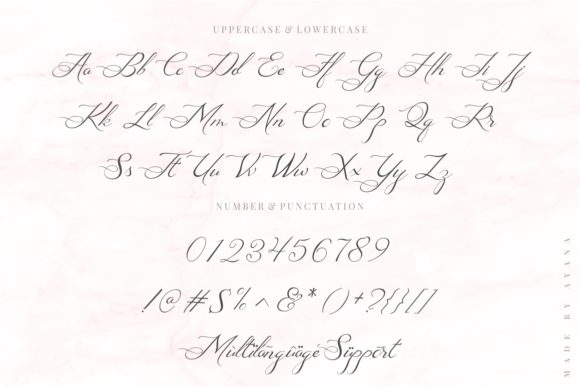 UPPERCASE & LOWERCASE
Aa Bb Cc Dd Ee Ff Gg Hh Ii Jj
Kk Ll Mm Nn Oo Pp Qq Rr
Ss Tt Uu Vv Ww Xx Yy Zz
NUMBER & PUNCTUATION
0123456789
!@#$%^&*()+?{}[]
Mùltïlãngûägé Süppört
MADE BY AYANA